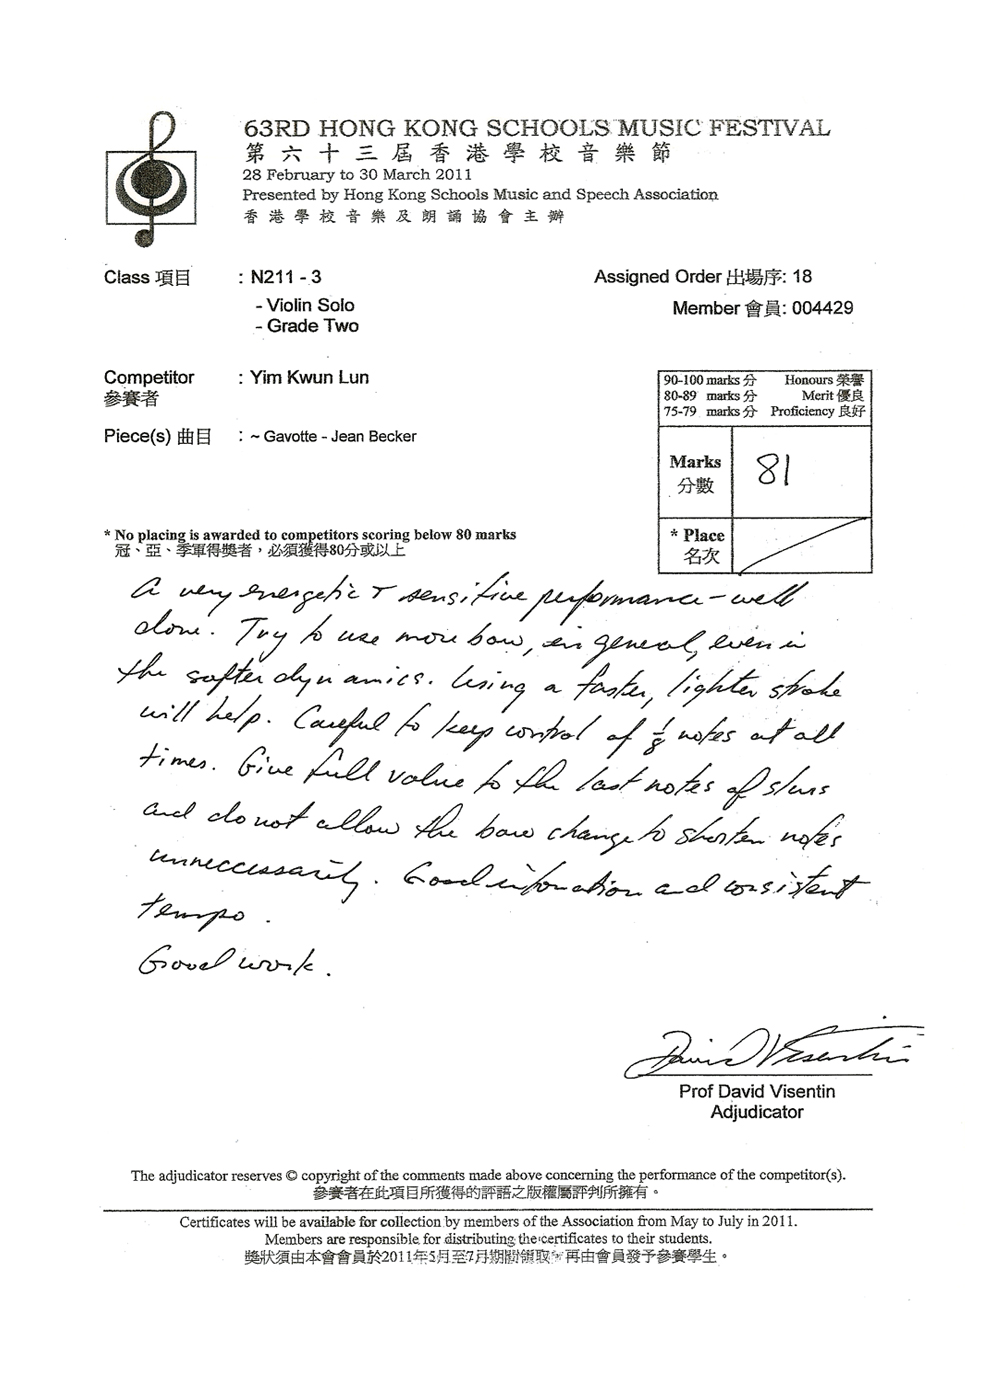 63RD HONG KONG SCHOOLS MUSIC FESTIVAL
第六十三屆香港學校音樂節
28 February to 30 March 2011
Presented by Hong Kong Schools Music and Speech Association
香港學校音樂及朗誦協會主辦
Class 項目 : N211 - 3
- Violin Solo
- Grade Two
Assigned Order 出場序: 18
Member 會員: 004429
Competitor : Yim Kwun Lun
參賽者
Piece(s) 曲目 : ~ Gavotte - Jean Becker
90-100 marks 分 Honours 榮譽
80-89 marks 分 Merit 優良
75-79 marks 分 Proficiency 良好
Marks 81
分數
* Place
名次
* No placing is awarded to competitors scoring below 80 marks
冠、亞、季軍得獎者，必須獲得80分或以上
A very energetic + sensitive performance - well
done. Try to use more bow, in general, even in
the softer dynamics. Using a faster, lighter stroke
will help. Careful to keep control of 1/8 notes at all
times. Give full value to the last notes of slurs
and do not allow the bow change to shorten notes
unneccessarily. Good intonation and consistent
tempo.
Good work.
David Visentin
Prof David Visentin
Adjudicator
The adjudicator reserves © copyright of the comments made above concerning the performance of the competitor(s).
參賽者在此項目所獲得的評語之版權屬評判所擁有。
Certificates will be available for collection by members of the Association from May to July in 2011.
Members are responsible for distributing the certificates to their students.
獎狀須由本會會員於2011年5月至7月期間領取，再由會員發予參賽學生。